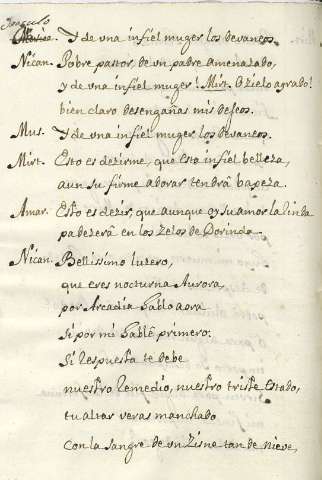 Musica. Y de vna infiel muger los devaneos.
Nican. Pobre pastor de vn padre amenazado,
y de vna infiel muger! Mirt. O zielo ayrado!
bien claro desengañas mis deseos.
Mus. Y de vna infiel muger los devaneos.
Mirt. Esto es dezirme, que esta infiel belleza,
aun su firme adorar tendrâ bageza.
Amar. Esto es dezir, que aunque oy su amor la rinda
padezerâ en los zelos de Dorinda.
Nican. Bellissimo luzero,
que eres nocturna Aurora,
por Arcadia hablo aora
si por mi hablê primero.
Si respuesta te debe
nuestro remedio, nuestro triste estado,
tu altar veras manchado
con la sangre de vn zisne tan de nieve,